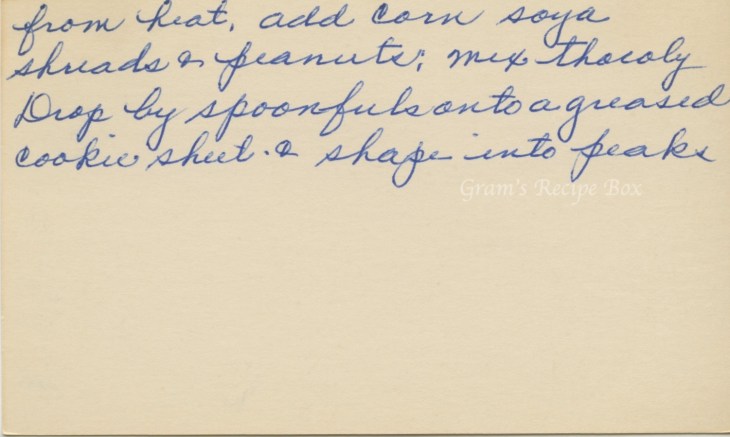 from heat, add corn soya
shreads & peanuts; mix thocoly
Drop by spoonfuls onto a greased
cookie sheet & shape into peaks
Gram's Recipe Box